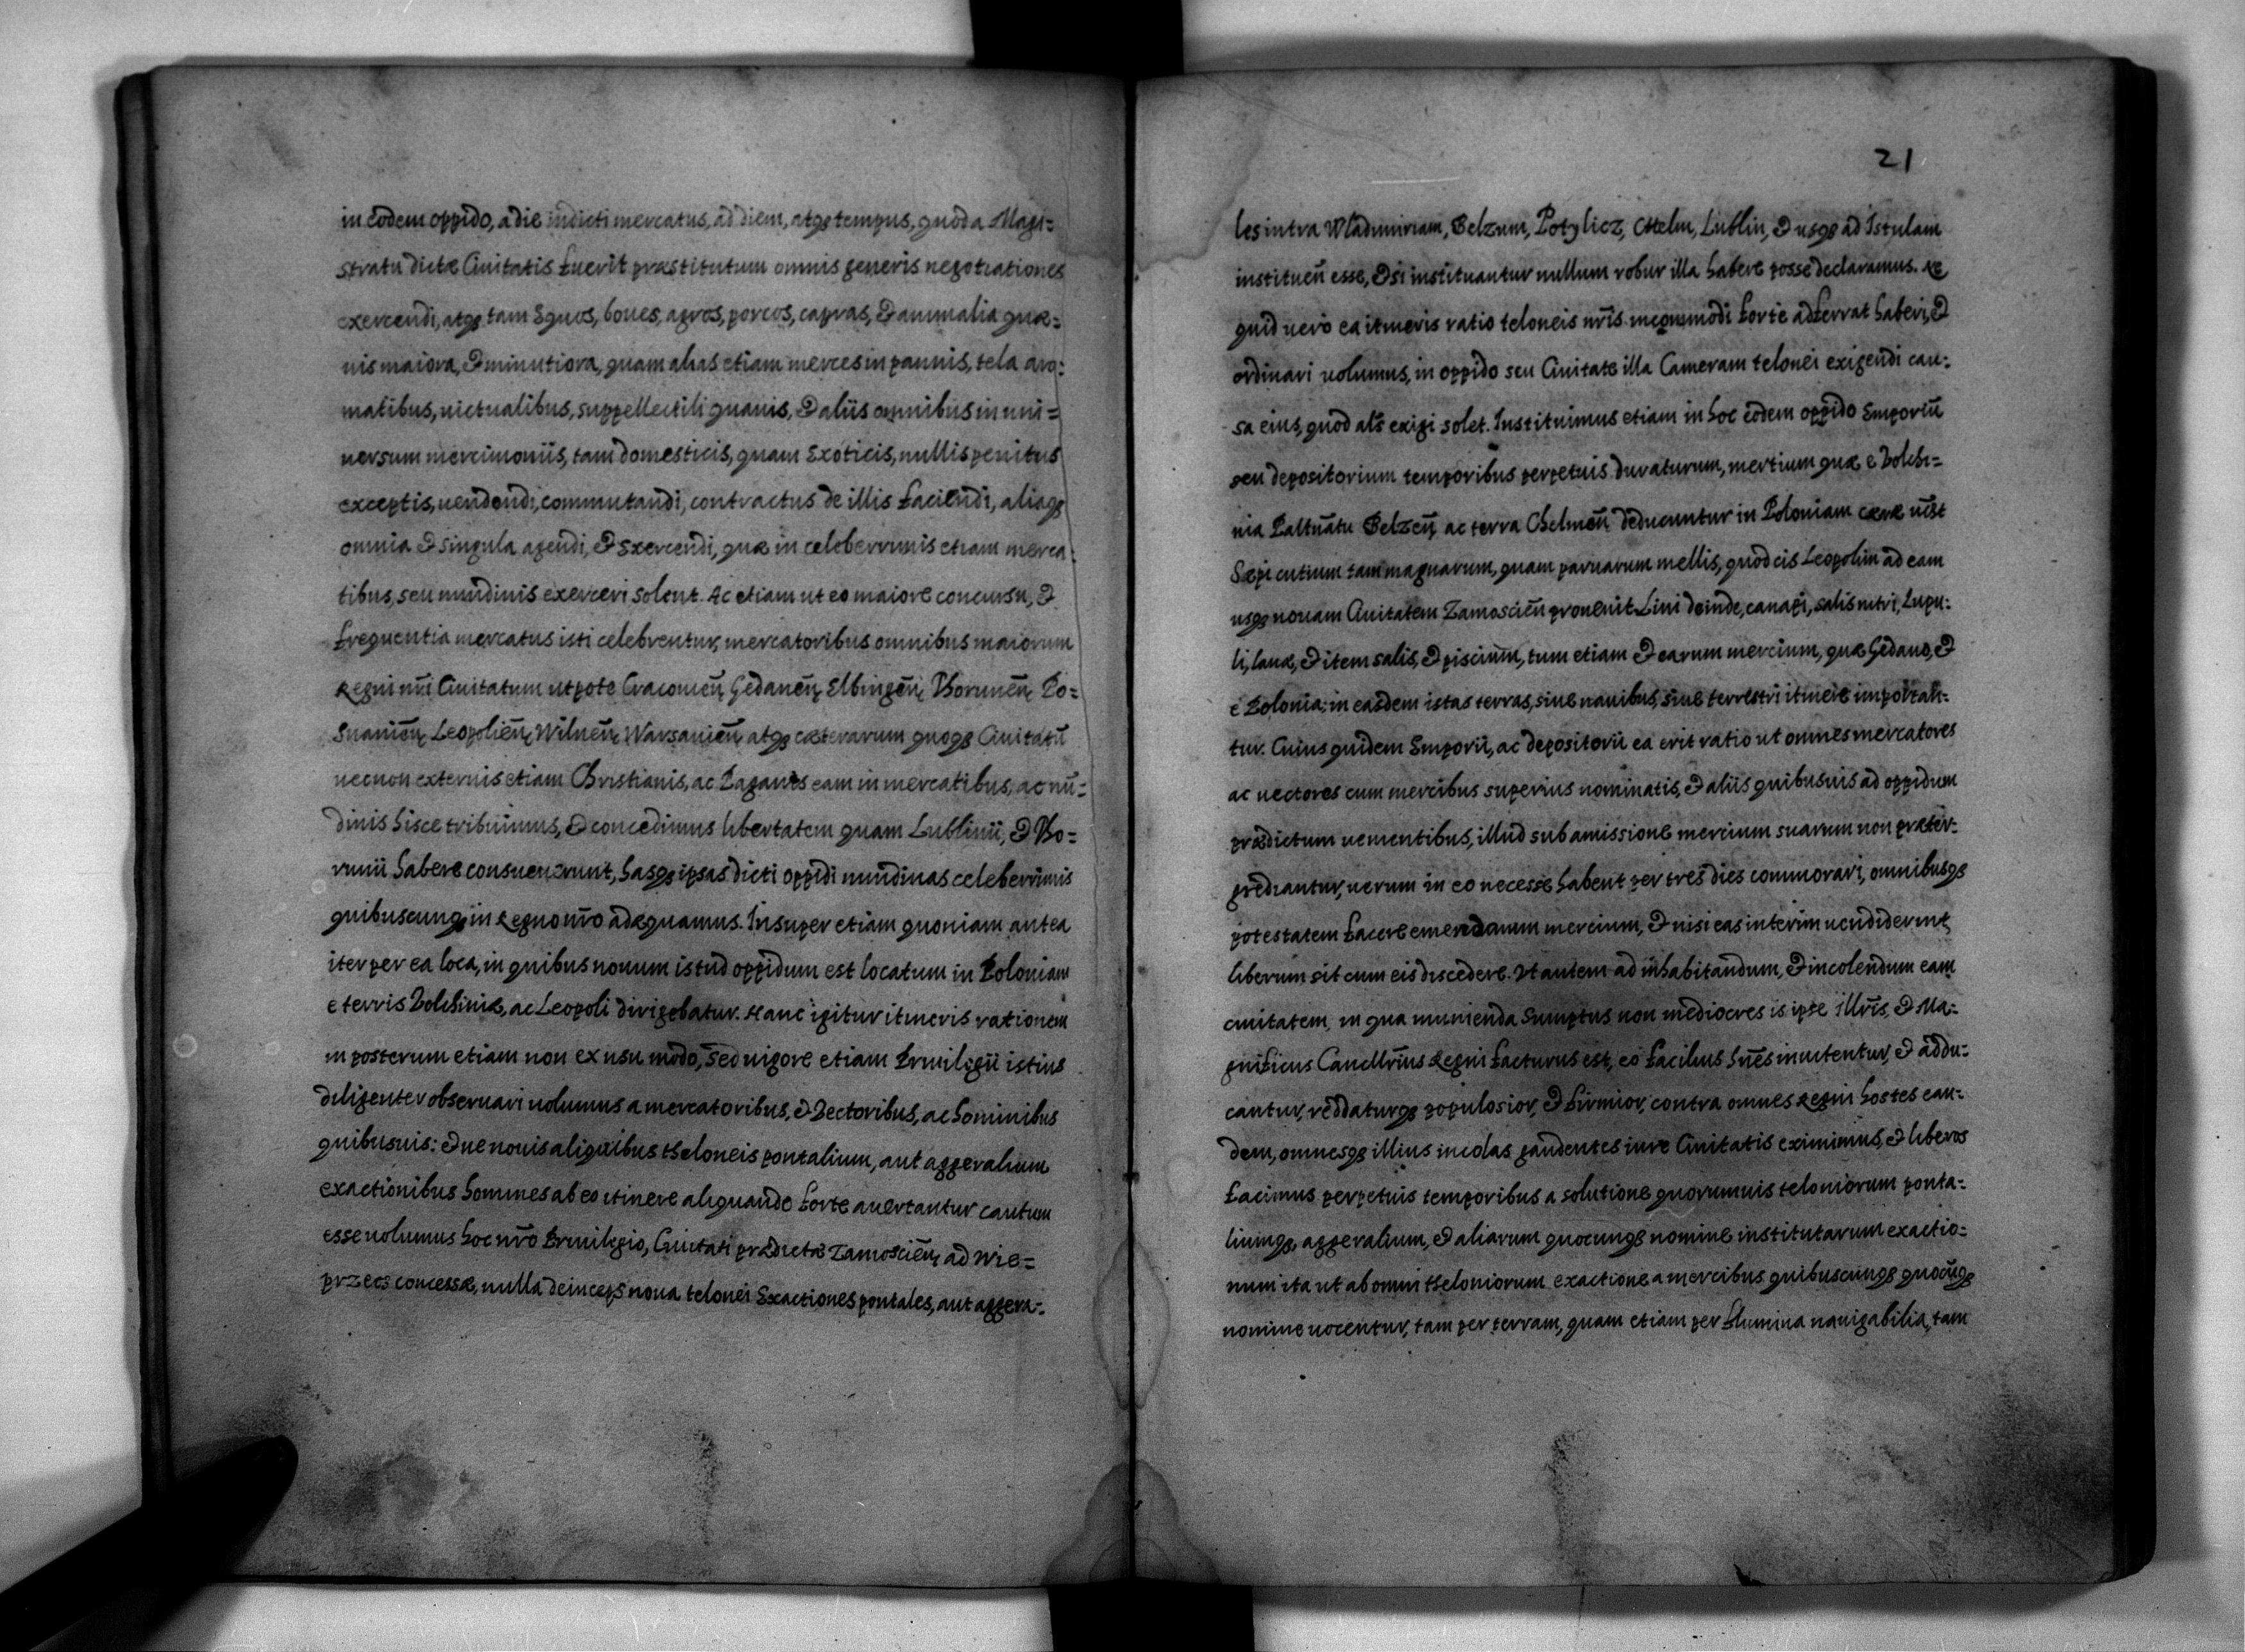 in eodem oppido, a die indicti mercatus, ad diem, atq₃ tempus, quod a Magi=
stratu dictæ Ciuitatis fuerit præstitutum omnis generis negotiationes
exercendi, atq₃ tam Equos, boues, agros, porcos, capras, & animalia quæ=
uis maiora, & minutiora, quam alias etiam merces in pannis, tela aro=
matibus, uictualibus, suppellectili quauis, & aliis omnibus in uni=
uersum mercimoniis, tam domesticis, quam Exoticis, nullis penitus
exceptis, uendendi, commutandi, contractus de illis faciendi, aliaq₃
omnia & singula agendi, & Exercendi, quæ in celeberrimis etiam merca=
tibus, seu nundinis exerceri solent. Ac etiam ut eo maiore concursu, &
frequentia mercatus isti celebrentur, mercatoribus omnibus maiorum
Regni nr̃i Ciuitatum utpote Cracouien̄, Gedanen̄, Elbingen̄, Thorunen̄, Po=
snanien̄, Leopolien̄, Wilnen̄, Warsauien̄, atq₃ cæterarum quoq₃ Ciuitatū
necnon externis etiam Christianis, ac Paganis eam in mercatibus, ac nū=
dinis hisce tribuimus, & concedimus libertatem quam Lublinii, & Tho=
runii habere consueuerunt, hasq₃ ipsas dicti oppidi nundinas celeberrimis
quibuscunq₃ in Regno nr̃o adæquamus. Insuper etiam quoniam antea
iter per ea loca, in quibus nouum istud oppidum est locatum in Poloniam
e terris Volhiniæ, ac Leopoli dirigebatur. Hanc igitur itineris rationem
in posterum etiam non ex usu modo, sed uigore etiam Priuilegii istius
diligenter obseruari uolumus a mercatoribus, & Vectoribus, ac hominibus
quibusuis: & ne nouis aliquibus theloneis pontalium, aut aggeralium
exactionibus homines ab eo itinere aliquando forte auertantur cautum
esse uolumus hoc nr̃o Priuilegio, Ciuitati prædictæ Zamoscien̄, ad Wie=
przecz concessæ, nulla deinceps noua telonei Exactiones pontales, aut aggera=
21
les intra Wladimiriam, Belzum, Potylicz, Chelm, Lublin, & usq₃ ad Istulam
institueñ esse, & si instituantur nullum robur illa habere posse declaramus. Ne
quid uero ea itineris ratio teloneis nr̃is incommodi forte adferrat haberi, &
ordinari uolumus, in oppido seu Ciuitate illa Cameram telonei exigendi cau=
sa eius, quod als̃ exigi solet. Instituimus etiam in hoc eodem oppido Emporiū
seu depositorium temporibus perpetuis duraturum, mertium quæ e Volhi=
nia Palt̃natu Belzen̄, ac terra Chelmen̄ deducuntur in Poloniam ceræ uc̃t
Sæpi cutium tam magnarum, quam paruarum mellis, quod cis Leopolim ad eam
usq₃ nouam Ciuitatem Zamoscien̄ prouenit. Lini deinde, canapi, salis nitri, Lupu=
li, lanæ, & item salis, & piscium, tum etiam & earum mercium, quæ Gedano, &
e Polonia, in easdem istas terras, siue nauibus, siue terrestri itinere importan=
tur. Cuius quidem Emporii, ac depositorii ea erit ratio ut omnes mercatores
ac uectores cum mercibus superius nominatis, & aliis quibusuis ad oppidum
prædictum uenientibus, illud sub amissione mercium suarum non præter=
grediantur, uerum in eo necesse habent per tres dies commorari, omnibusq₃
potestatem facere emendarum mercium, & nisi eas interim uendiderint,
liberum sit cum eis discedere. Ut autem ad inhabitandum, & incolendum eam
ciuitatem, in qua munienda sumptus non mediocres is ipse Illr̃is, & Ma=
gnificus Cancellr̃ius Regni facturus est, eo facilius hñes inuitentur, & addu=
cantur, reddaturq₃ populosior, & firmior, contra omnes Regni hostes ean=
dem, omnesq₃ illius incolas gaudentes iure Ciuitatis eximimus, & liberos
facimus perpetuis temporibus a solutione quorumuis teloniorum ponta=
liumq₃, aggeralium, & aliarum quocunq₃ nomine institutarum exactio=
num ita ut ab omni theloniorum exactione a mercibus quibuscunq₃ quocūq₃
nomine uocentur, tam per terram, quam etiam per flumina nauigabilia, tam